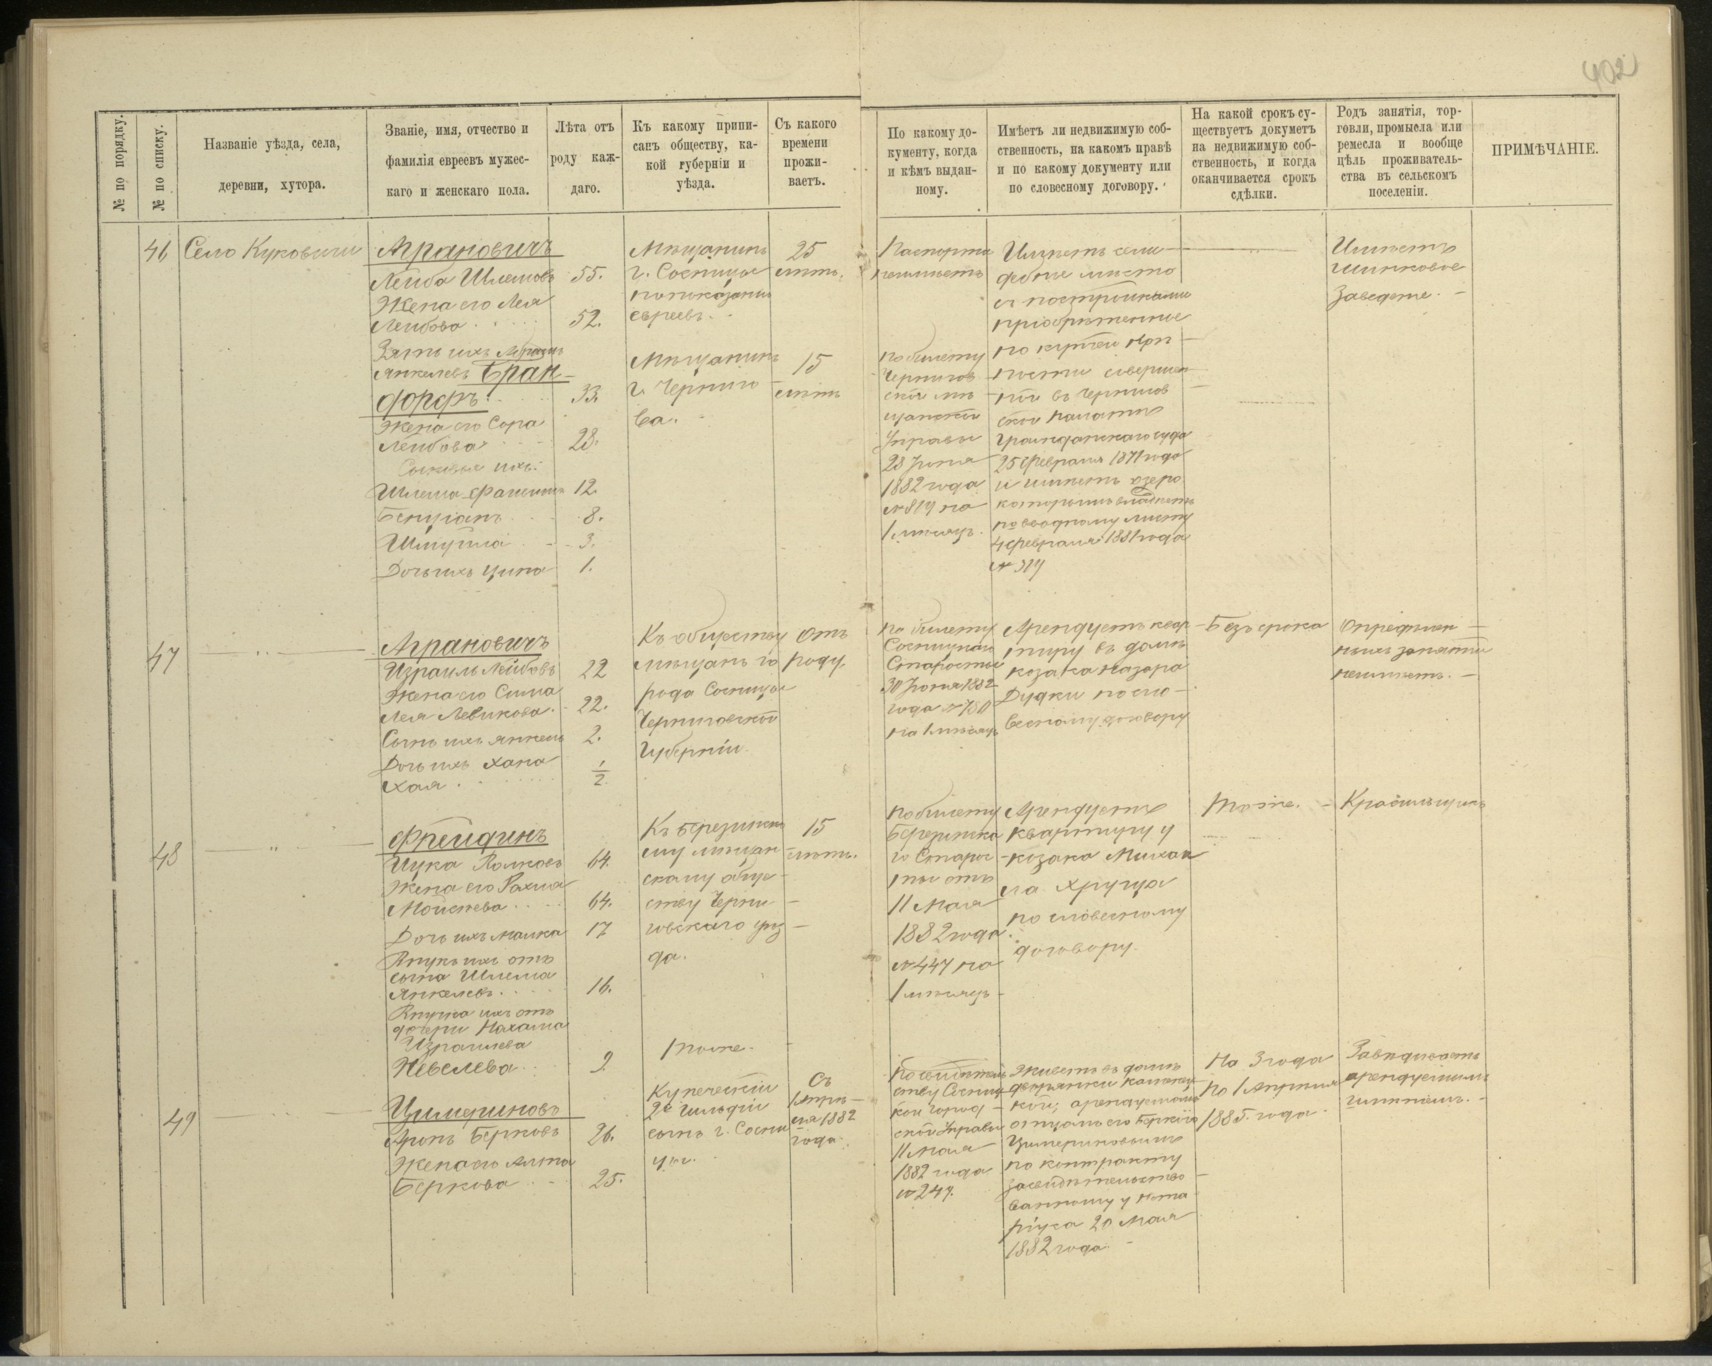 402
№ по порядку.
№ по списку.
Названіе уѣзда, села,
деревни, хутора.
Званіе, имя, отчество и
фамилія евреевъ мужес-
каго и женскаго пола.
Лѣта отъ
роду каж-
даго.
Къ какому припи-
санъ обществу, ка-
кой губерніи и
уѣзда.
Съ какого
времени
прожи-
ваетъ.
По какому до-
кументу, когда
и кѣмъ выдан-
ному.
Имѣетъ ли недвижимую соб-
ственность, на какомъ правѣ
и по какому документу или
по словесному договору.
На какой срокъ су-
ществуетъ докуметъ
на недвижимую соб-
ственность, и когда
оканчивается срокъ
сдѣлки.
Родъ занятія, тор-
говли, промысла или
ремесла и вообще
цѣль проживатель-
ства въ сельскомъ
поселеніи.
ПРИМѢЧАНІЕ.
46
Село Куковичи
Аграновичъ
Лейба Шлемовъ 55.
Жена его Лея
Лейбова 52.
Зять ихъ
Янкелевъ Бран-
дорфъ 33.
Жена его Сора
Лейбова 28.
Сыновья ихъ:
Шлема 12.
8.
Шмуйла 3.
Дочь ихъ Ципа 1.
Мѣщанинъ
г. Сосницы
евреевъ.
25
лѣтъ.
Мѣщанинъ
г. Черниго-
ва.
15
лѣтъ
Паспорта
неимѣетъ
по билету
Чернигов-
ской мѣ-
щанской
Управы
28 Іюня
1882 года
№ 819 на
1 мѣсяцъ.
Имѣетъ селе-
дебное мѣсто
съ постройками
пріобрѣтенное
по купчей крѣ-
пости совершен-
ной въ Чернигов
ской палатѣ
Гражданскаго суда
25 февраля 1871 года
и имѣетъ озеро
которымъ владѣетъ
по вводному листу
4 февраля 1881 года
№ 319
Имѣетъ
шинковое
заведеніе.
47
Аграновичъ
Израиль Лейбовъ 22
Жена его Сима
Лея Левикова. 22.
Сынъ ихъ Янкель 2.
Дочь ихъ Хана
Хая. 1/2
Къ обществу
мѣщанъ го
рода Сосницы
Черниговской
Губерніи.
отъ
роду.
По билету
Сосницкаго
Старосты
30 Іюня 1882
года № 780
на 1 мѣсяцъ
Арендуетъ квар-
тиру въ домѣ
козака Назара
Дудки по сло-
весному договору
Безъ срока
Опредѣлен-
ныхъ занятій
неимѣетъ.
48
Фрейдинъ
64.
Жена его Рахиа
Мойсеева 64.
Дочь ихъ Малка 17
Внукъ ихъ отъ
сына Шлема
Янкелевъ. 16.
Внучка ихъ отъ
дочери Нахама
Израилева
Невелева 9
Къ Березинско
му мѣщан
скому обще-
ству Черни-
говскаго уѣз-
да.
Тоже.
15
лѣтъ.
По билету
Березинска
го Старос-
ты отъ
11 Мая
1882 года
№ 447 на
1 мѣсяцъ
Арендуетъ
квартиру у
козака Михаи
ла Хруща
по словесному
договору.
Тоже.
Красильщикъ
49
Цимериновъ
Аронъ Берковъ 26.
Жена его Алта
Беркова 25.
Купеческій
2й гильдіи
сынъ г. Сосни
цы.
Съ
1 Апрѣ-
ля 1882
года.
По свидѣтель
ству Сосниц-
кой город-
ской Управы
11 Мая
1882 года
№ 247.
Живетъ въ домѣ
дворянки
кой, арендуемомъ
отцомъ его Беркою
Цимериновымъ
по контракту
засвидѣтельство-
ванному у нота-
ріуса 20 Мая
1882 года.
На 3 года
по 1 Апрѣля
1885. года.
Завѣдываетъ
арендуемымъ
шинкомъ.